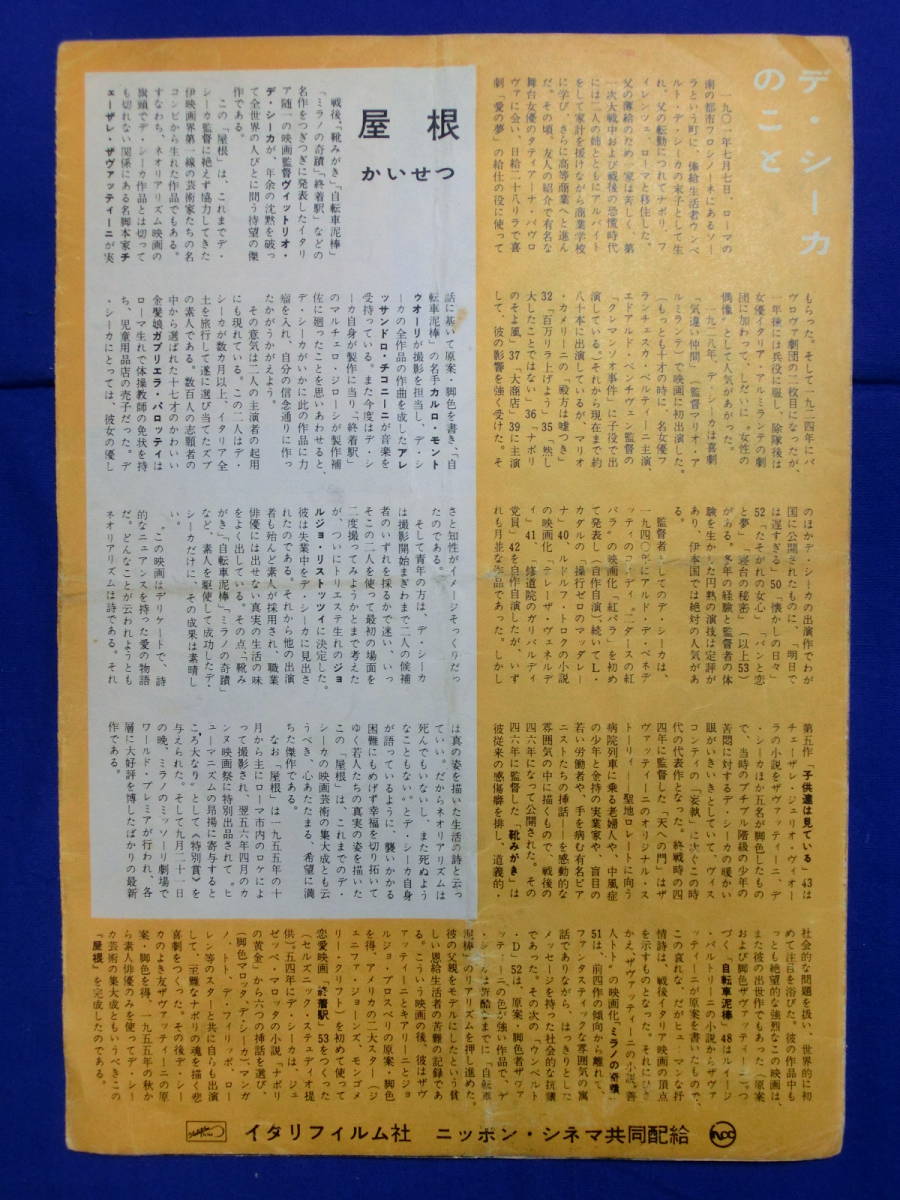 デ・シーカ
のこと
一九〇一年七月七日、ローマの
南の都市フロシノーネにあるソー
ラという町に、俸給生活者ウンベ
ルト・デ・シーカの末子として生
れ、父の転勤につれてナポリ、フ
ィレンツェ、ローマと移住した。
父の薄給のため一家は苦しく、第
一次大戦中および戦後の恐慌時代
には二人の姉とともにアルバイト
をして家計を援けながら商業学校
に学び、さらに高等商業へと進ん
だ。その頃、友人の紹介で有名な
舞台女優のタティアーナ・パヴロ
ヴァに会い、日給二十八リラで喜
劇「愛の夢」の給仕の役に使って
もらった。そして一九二四年にパ
ヴロヴァ劇団の二枚目になったが、
一年後には兵役に服し、除隊後は
女優イタリア・アルミランテの劇
団に加わって、しだいに〝女性の
偶像〟として人気があがった。
一九二八年、デ・シーカは喜劇
「気違い仲間」（監督マリオ・ア
ルミランテ）で映画に初出演した。
（もっとも十才の時に、名女優フ
ランチェスカ・ベルティーニ主演、
エドアルド・ベンチヴェンガ監督の
「クレマンソオ事件」に子役で出
演している。）それから現在まで約
八十本に出演しているが、マリオ
・カメリーニの「殿方は嘘つき」
32「百万リラ上げよう」35「熟し
たことではない」36「ナポリ
のそよ風」37「大商店」39に主演
して、彼の影響を強く受けた。そ
のほかデ・シーカの出演作でわが
国に公開されたものに、「明日で
は遅すぎる」50「懐かしの日々」
52「たそがれの女心」「パンと恋
と夢」「寝台の秘密」（以上53）
がある。多年の経験と監督者の体
験を生かした円熟の演技は定評が
あり、伊本国では絶対の人気があ
る。
監督者としてのデ・シーカは、
一九四〇年にアルド・デ・ベネデ
ッティのコメディ〝二ダースの紅
バラ〟の映画化「紅バラ」を初め
て発表し（自作自演）、続いてL・
カダルの「操行ゼロのマッダレー
ナ」40、ルドルフ・トロクの小説
の映画化「テレーザ・ヴェネルデ
ィ」41、「修道院のガリバルディ
党員」42を自作自演したが、いず
れも月並な作品であった。しかし
第五作「子供達は見ている」43は
チェーザレ・ジュリオ・ヴィオー
ラの小説をザヴァッティーニ、デ
・シーカほか五名が脚色したもの
で、当時のプチブル階級の少年の
苦悶に対するデ・シーカの暖かい
眼がいきいきとしていて、ヴィス
コンティの「妄執」に次ぐこの時
代の代表作となった。終戦時の四
四年に監督した「天への門」はザ
ヴァッティーニのオリジナル・ス
トーリィ――聖地ロレートに向う
病院列車に乗る老婦人や、中風症
の少年と金持の実業家や、盲目の
若い労働者や、手を病む有名ピア
ニストたちの挿話――を感動的な
雰囲気の中に描くもので、戦後の
四六年になって公開された。その
四六年に監督した「靴みがき」は
彼従来の感傷癖を排し、道義的・
社会的な問題を扱い、世界的に初
めて注目を浴びた。彼の作品中も
っとも絶望的な強烈なこの映画は、
また彼の出世作でもあった（原案
および脚色ザヴァッティーニ）。つ
づく「自転車泥棒」48はルイージ
・バルトリーニの小説からザヴァ
ッティーニが原案を書いたもので、
この哀れな、だがヒューマンな抒
情詩は、戦後イタリア映画の頂点
を示すものとなった。それにひき
かえ、ザヴァッティーニの小説〝善
人トト〟の映画化「ミラノの奇蹟」
51は、前四作の傾向から離れて、
ファンタスティックな雰囲気の寓
話でありながら、はっきりとした
メッセージを持った社会的な抗議
であった。その次の「ウンベルト
・D」52は、原案・脚色者ザヴァ
ッティーニの色が強い作品で、デ
彼の父親をモデルにしたという貧
しい恩給生活者の苦難の記録であ
る。こういう映画の後、彼はザヴ
ァッティーニとキアリーニとジョ
ルジョ・プロスペリの原案・脚色
を得、アメリカの二大スター（ジ
ェニファ・ジョーンズ、モンゴメ
リー・クリフト）を初めて使って
恋愛映画「終着駅」53をつくった
（セルズニック・ステュディオ提
供）。五四年にデ・シーカは、ジュ
ゼッペ・マロッタの小説「ナポリ
の黄金」から六つの挿話を選び、
（脚色マロッタ、デ・シーカ）、マンガ
ーノ、トト、デ・フィリッポ、ロー
レン等のスターと共に自らも出演
して、至難なナポリの魂を描く悲
喜劇をつくった。その後デ・シー
カのよき友ザヴァッティーニの原
案・脚色を得、一九五五年の秋か
ら素人俳優のみを使ってデ・シー
カ芸術の集大成ともいうべきこの
「屋根」を完成したのである。
屋根
かいせつ
戦後、「靴みがき」「自転車泥棒」
「ミラノの奇蹟」「終着駅」などの
名作をつぎつぎに発表したイタリ
ア随一の映画監督ヴィットリオ・
デ・シーカが、年余の沈黙を破っ
て全世界の人びとに問う待望の傑
作である。
この「屋根」は、これまでデ・
シーカ監督に絶えず協力してきた
伊映画界第一線の芸術家たちの名
コンビから生れた作品でもある。
すなわち、ネオリアリズム映画の
旗頭でデ・シーカ作品とは切って
も切れない関係にある名脚本家チ
ェーザレ・ザヴァッティーニが実
話に基いて原案・脚色を書き、「自
転車泥棒」の名手カルロ・モント
ゥオーリが撮影を担当し、デ・シ
ーカの全作品の作曲を成したアレ
ッサンドロ・チコニーニが音楽を
受持っている。また今度はデ・シ
ーカ自身が製作に当り、「終着駅」
のマルチェロ・ジローシが製作補
佐に廻ったことを思いあわせると、
デ・シーカがいかに此の作品に力
瘤を入れ、自分の信念通りに作っ
たかがうかがえよう。
その意気は二人の主演者の起用
にも現れている。この二人はデ・
シーカが数カ月以上、イタリア全
土を旅行して遂に選び当てたズブ
の素人である。数百人の志願者の
中から選ばれた十七才のかわいい
金髪娘ガブリエラ・パロッティは
ローマ生れで体操教師の免状を持
ち、児童用品店の売子だった。デ
・シーカにとっては、彼女の優し
さと知性がイメージそっくりだっ
たのである。
そして青年の方は、デ・シーカ
は撮影開始まぎわまで二人の候補
者のいずれを採るかで迷い、いっ
そこの二人を使って最初の場面を
二度撮ってみようかとまで考えた
が、ついにトリエステ生れのジョ
ルジョ・リストッツィに決定した。
彼は失業中をデ・シーカに見出さ
れたのである。それから他の出演
者も殆んど素人が採用され、職業
俳優には出せない真実の生活の味
をよく出している。その点、「靴み
がき」「自転車泥棒」「ミラノの奇蹟」
など、素人を駆使して成功したデ・
シーカだけに、その成果は素晴し
い。
〝この映画はデリケートで、詩
的なニュアンスを持った愛の物語
だ。どんなことが云われようとも
ネオリアリズムは詩である。それ
は真の姿を描いた生活の詩と云っ
ていい。だからネオリアリズムは
死んでもいないし、また死ぬよう
なこともない〟とデ・シーカ自身
が語っているように、襲いかかる
困難にもめげず幸福を切り拓いて
ゆく若人たちの真実の姿を描いた
この「屋根」は、これまでのデ・
シーカの映画芸術の集大成とも云
うべき、心あたたまる、希望に満
ちた傑作である。
なお「屋根」は一九五五年の十
月から主にローマ市内のロケによ
って撮影され、翌五六年四月のカ
ンヌ映画祭に特別出品されて〝ヒ
ューマニズムの昂場に寄与すると
ころ大なり〟として《特別賞》を
与えられた。そして九月二十一日
の晩、ミラノのミッソーリ劇場で
ワールド・プレミアが行われ、各
層に大好評を博したばかりの最新
作である。
イタリフィルム社　ニッポン・シネマ共同配給
NCC